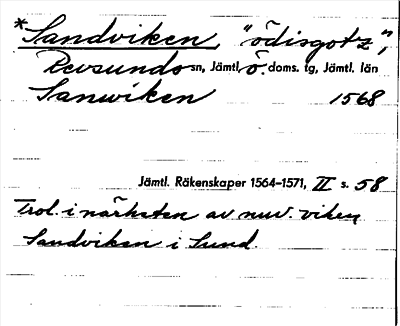 *Sandviken, "ödisgotz",
Revsunds sn, Jämtl. Ö. doms. tg, Jämtl. län
Sanwiken 1568
Jämtl. Räkenskaper 1564–1571, II s. 58
Trol. i närheten av nuv. viken
Sandviken i Sund.